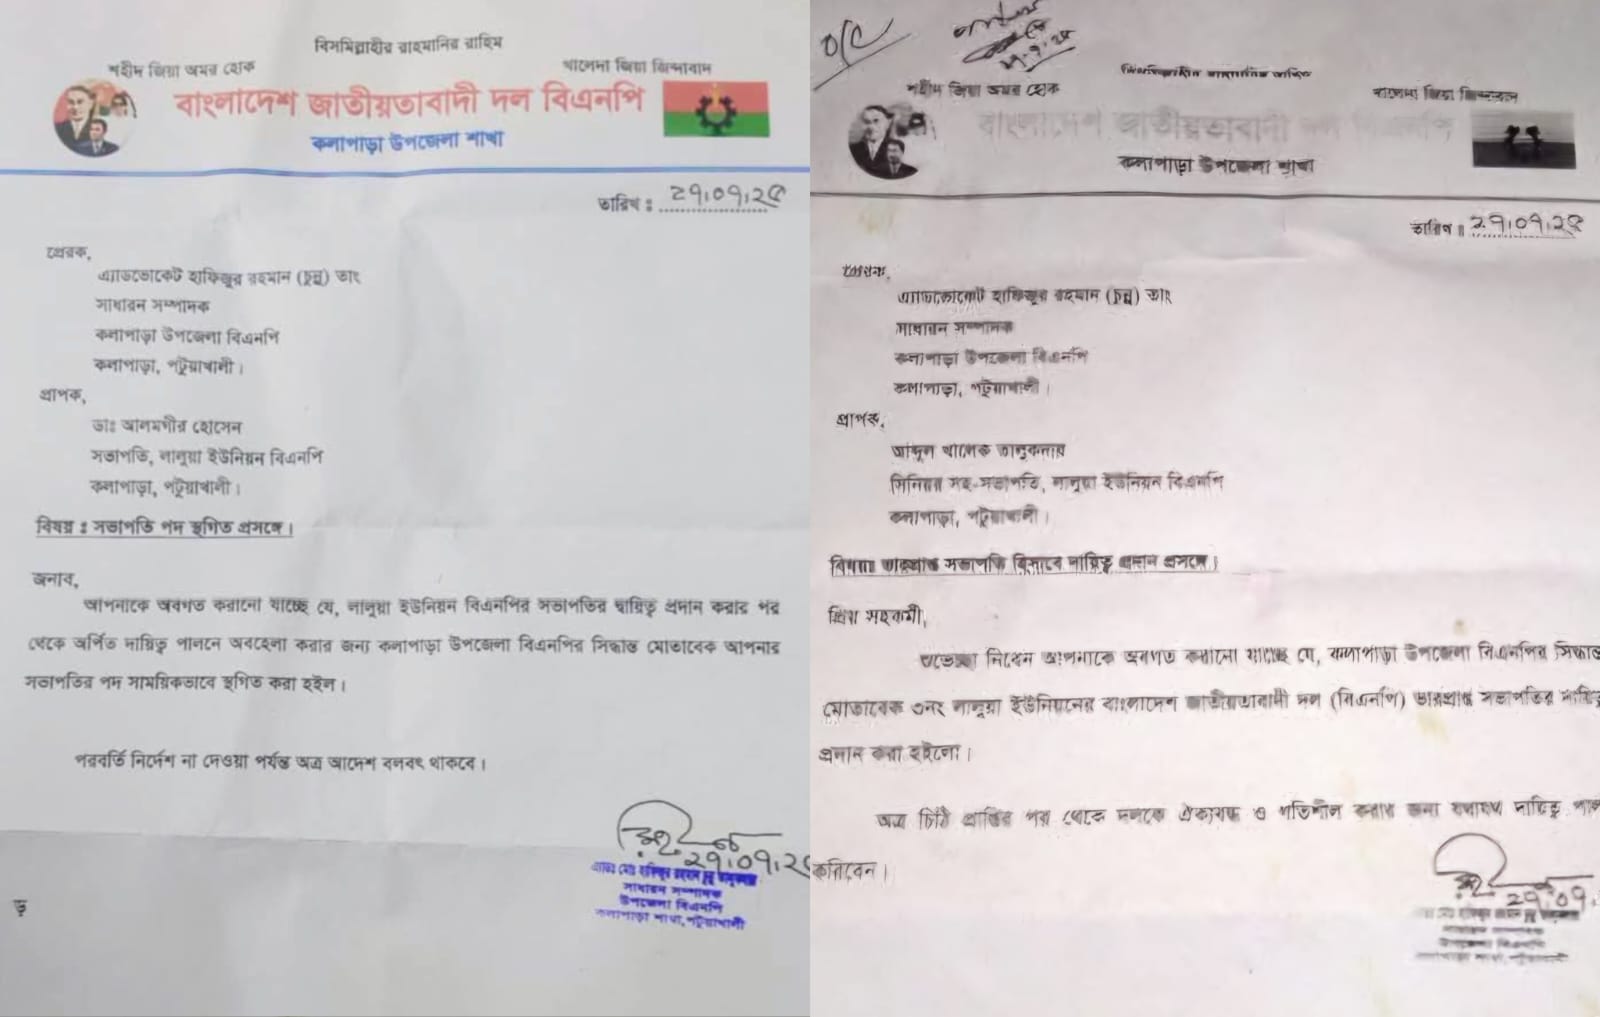 বিসমিল্লাহীর রাহমানির রাহিম
শহীদ জিয়া অমর হোক
খালেদা জিয়া জিন্দাবাদ
বাংলাদেশ জাতীয়তাবাদী দল বিএনপি
কলাপাড়া উপজেলা শাখা
তারিখ : ২৭.০৭.২৫
প্রেরক,
এ্যাডভোকেট হাফিজুর রহমান (চুন্নু) তাং
সাধারন সম্পাদক
কলাপাড়া উপজেলা বিএনপি
কলাপাড়া, পটুয়াখালী।
প্রাপক,
ডাঃ আলমগীর হোসেন
সভাপতি, লালুয়া ইউনিয়ন বিএনপি
কলাপাড়া, পটুয়াখালী।
বিষয় : সভাপতি পদ স্থগিত প্রসঙ্গে।
জনাব,
আপনাকে অবগত করানো যাচ্ছে যে, লালুয়া ইউনিয়ন বিএনপির সভাপতির দ্বায়িত্ব প্রদান করার পর
থেকে অর্পিত দায়িত্ব পালনে অবহেলা করার জন্য কলাপাড়া উপজেলা বিএনপির সিদ্ধান্ত মোতাবেক আপনার
সভাপতির পদ সাময়িকভাবে স্থগিত করা হইল।
পরবর্তি নির্দেশ না দেওয়া পর্যন্ত অত্র আদেশ বলবৎ থাকবে।
২৭.০৭.২৫
সাধারন সম্পাদক
উপজেলা বিএনপি
কলাপাড়া শাখা, পটুয়াখালী
ড়
O/C
শহীদ জিয়া অমর হোক
খালেদা জিয়া জিন্দাবাদ
বাংলাদেশ জাতীয়তাবাদী দল বিএনপি
কলাপাড়া উপজেলা শাখা
তারিখ : ২৭.০৭.২৫
প্রেরক,
এ্যাডভোকেট হাফিজুর রহমান (চুন্নু) তাং
সাধারন সম্পাদক
কলাপাড়া উপজেলা বিএনপি
কলাপাড়া, পটুয়াখালী।
প্রাপক,
আব্দুল খালেক তালুকদার
সিনিয়র সহ-সভাপতি, লালুয়া ইউনিয়ন বিএনপি
কলাপাড়া, পটুয়াখালী।
বিষয়ঃ ভারপ্রাপ্ত সভাপতি হিসাবে দায়িত্ব প্রদান প্রসঙ্গে।
প্রিয় সহকর্মী,
শুভেচ্ছা নিবেন আপনাকে অবগত করানো যাচ্ছে যে, কলাপাড়া উপজেলা বিএনপির সিদ্ধান্ত
মোতাবেক ৩নং লালুয়া ইউনিয়নের বাংলাদেশ জাতীয়তাবাদী দল (বিএনপি) ভারপ্রাপ্ত সভাপতির দায়িত্ব
প্রদান করা হইলো।
অত্র চিঠি প্রাপ্তির পর থেকে দলকে ঐক্যবদ্ধ ও গতিশীল করার জন্য যথাযথ দায়িত্ব
করিবেন।
২৭.০৭.